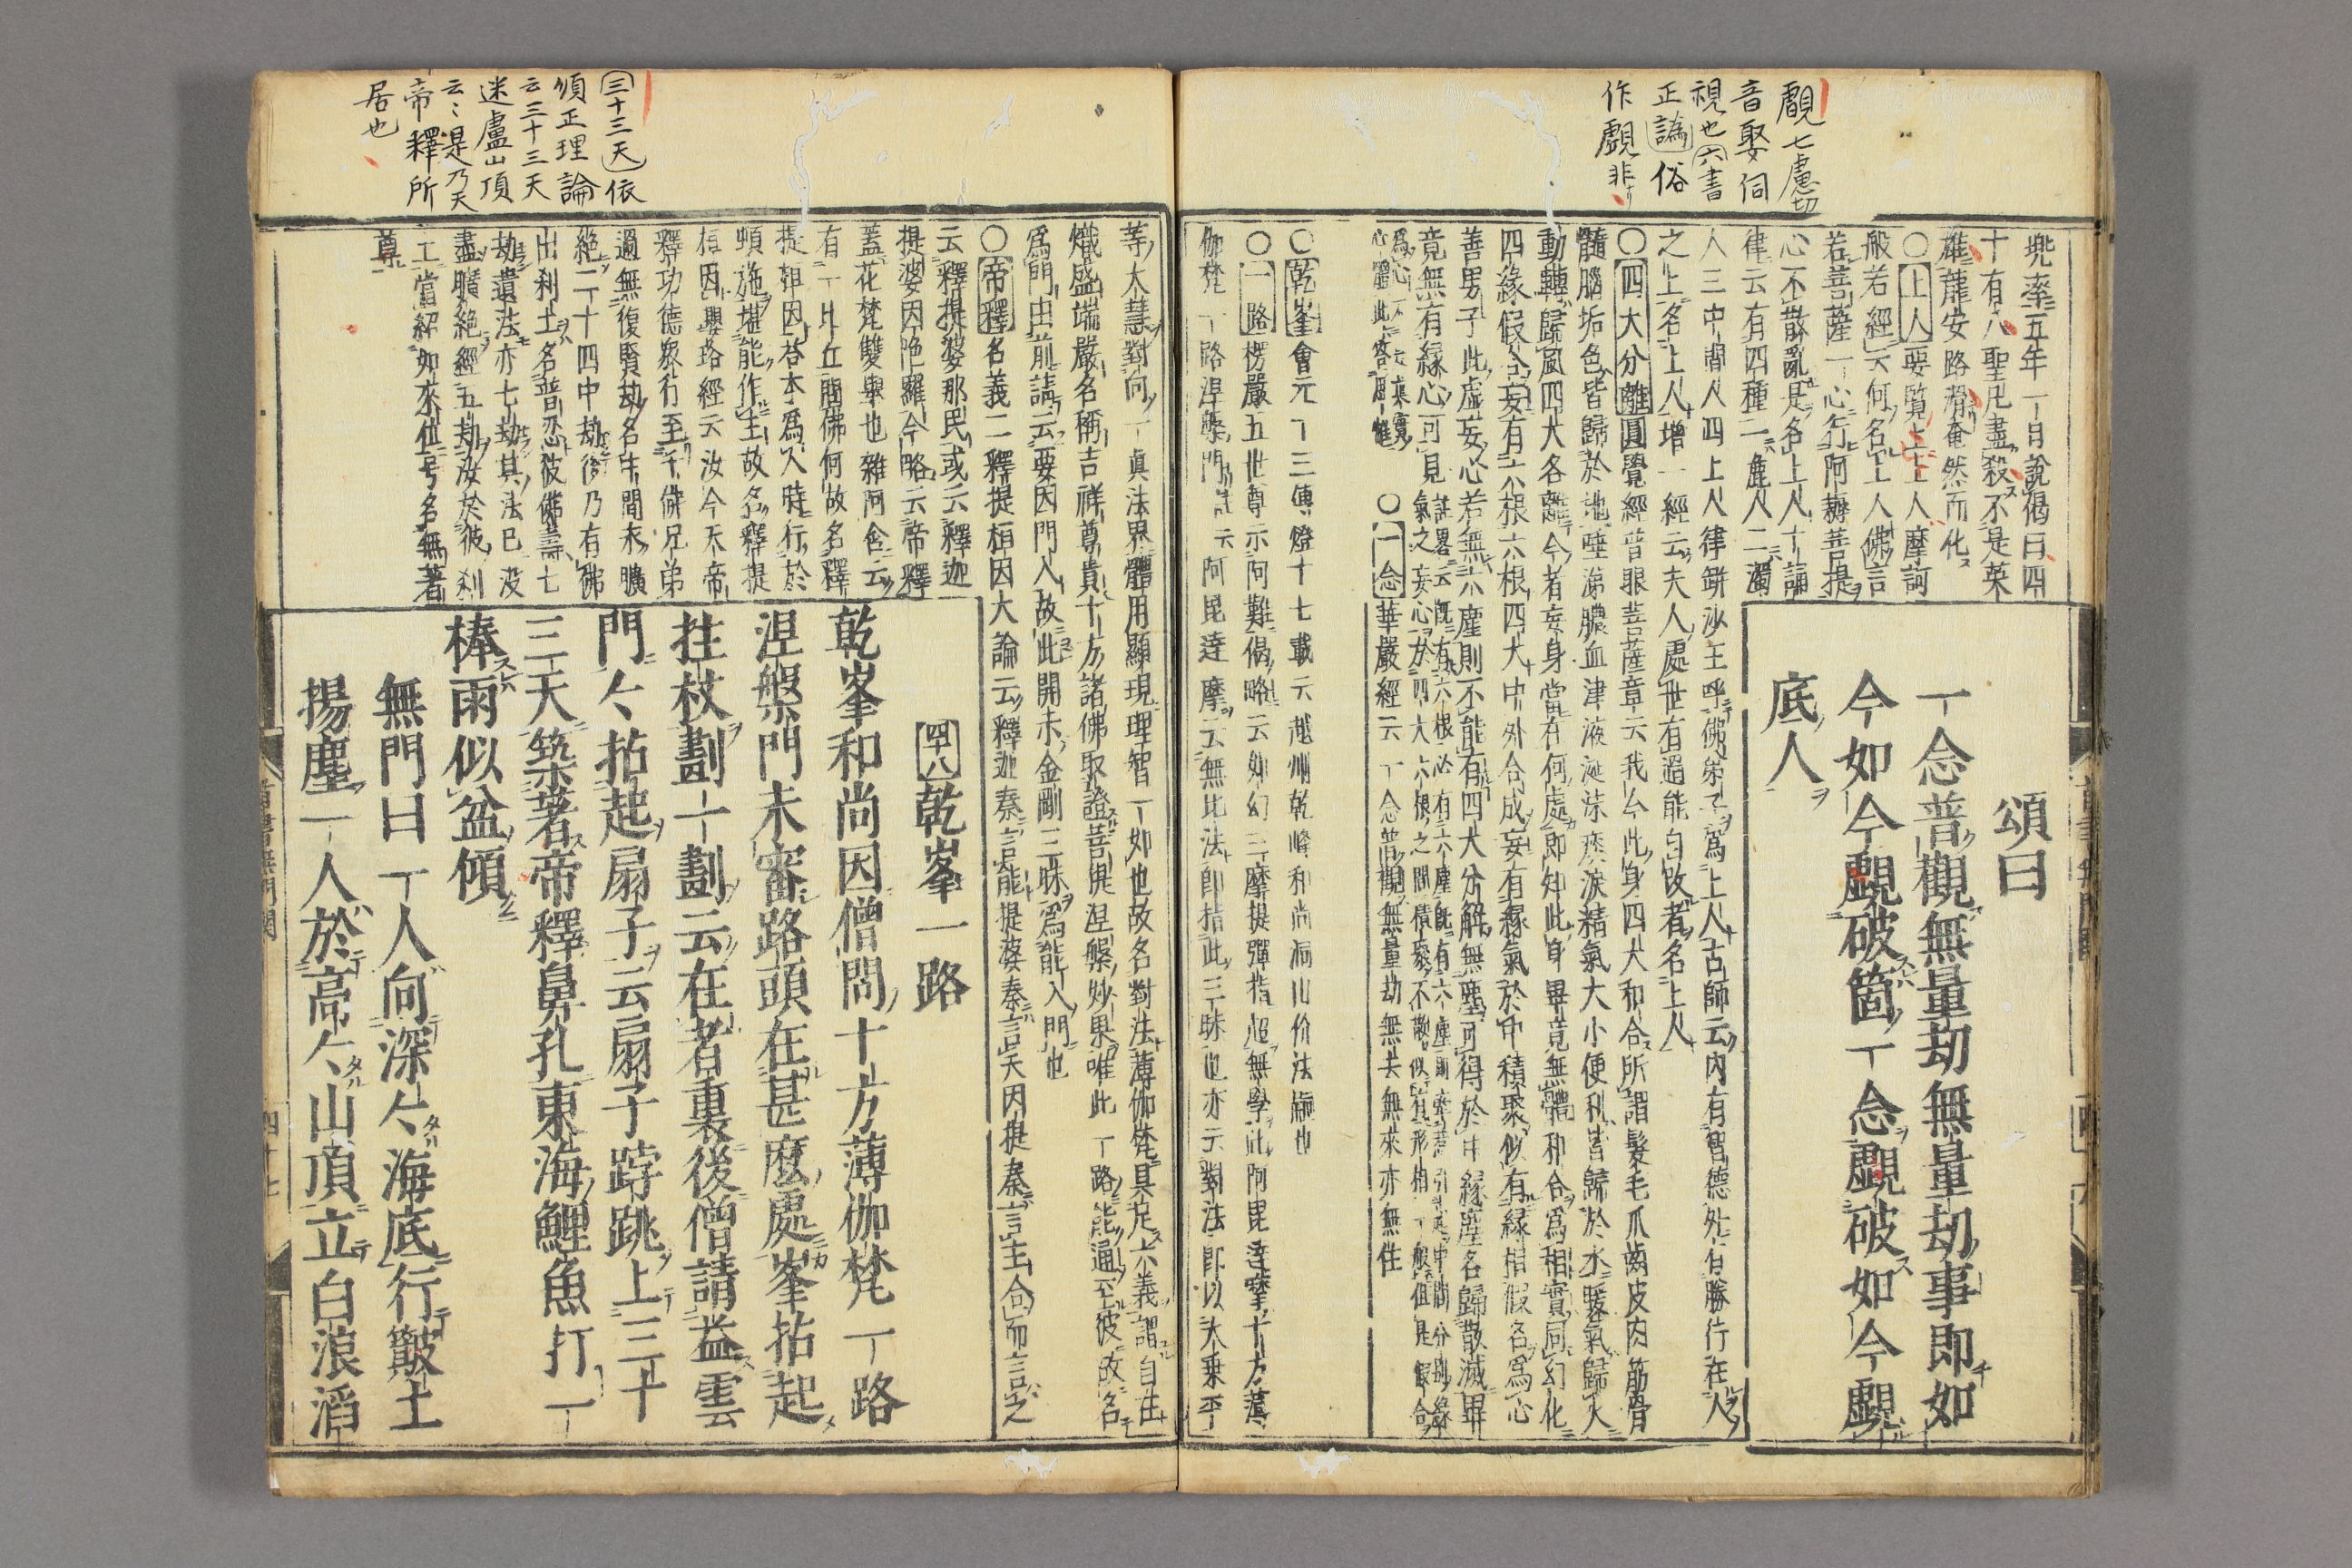 覰七慮切
音娶伺
視也六書
正譌俗
作覷非
兜率五年一日説偈曰四
十有八聖凡盡殺不是英
雄龍安路滑奄然而化
○上人要覧上上人摩訶
般若經云何名上人佛言
若菩薩一心行阿耨菩提
心不散亂是名上人十誦
律云有四種一麁人二濁
人三中間人四上人律缾沙王呼佛弟子爲上人古師云内有智德外有勝行在人
之上名上人増一經云夫人處世有過能自改者名上人
○四大分離圓覺經普眼菩薩章云我今此身四大和合所謂髮毛爪齒皮肉筋骨
髓腦垢色皆歸於地唾涕膿血津液涎沫痰淚精氣大小便利皆歸於水暖氣歸火
動轉歸風四大各離今者妄身當在何處即知此身畢竟無體和合爲相實同幻化
四緣假合妄有六根六根四大中外合成妄有緣氣於中積聚似有緣相假名爲心
善男子此虚妄心若無六塵則不能有四大分解無塵可得於中緣塵名歸散滅畢
竟無有緣心可見
○一念華嚴經云一念普觀無量劫無去無來亦無住
頌曰
一念普觀無量劫無量劫事即如
今如今覰破箇一念覰破如今覰
底人
○乾峯會元十三傳燈十七載云越州乾峰和尚洞山价法嗣也
○一路楞嚴五世尊示阿難偈略云如幻三摩提彈指超無學此阿毘達摩十方薄
伽梵一路涅槃門註云阿毘達摩云無比法即指此三昧也亦云對法即以大乗平
等大慧對向一眞法界體用顯現理智一如也故名對法薄伽梵具足六義謂自在
熾盛端嚴名稱吉祥尊貴十方諸佛取證菩提涅槃妙果唯此一路能通至彼故名
爲門由前請云要因門入故此開示金剛三昧爲能入門也
○帝釋名義二釋提桓因大論云釋迦秦言能提婆秦言天因提秦言主合而言之
云釋提婆那民或云釋迦
提婆因陁羅今略云帝釋
蓋花梵雙擧也雜阿含云
有一比丘問佛何故名釋
提桓因荅本爲人時行於
頓施堪能作主故名釋提
桓因瓔珞經云汝今天帝
釋功德衆行至千佛兄弟
過無復賢劫名中間未曠
絶二十四中劫後乃有佛
出刹土名普忍彼佛壽七
劫遺法亦七劫其法已没
盡曠絶經五劫汝於彼刹
土當紹如來位号名無著
尊
三十三天依
順正理論
云三十三天
迷盧山頂
云〻是乃天
帝釋所
居也
四十八乾峯一路
乾峯和尚因僧問十方薄伽梵一路
涅槃門未審路頭在甚麼處峯拈起
拄杖劃一劃云在者裏後僧請益雲
門〻拈起扇子云扇子𨁝跳上三十
三天築著帝釋鼻孔東海鯉魚打一
棒雨似盆傾
無門曰一人向深〻海底行簸土
揚塵一人於高〻山頂立白浪滔
首書無門關
四十七